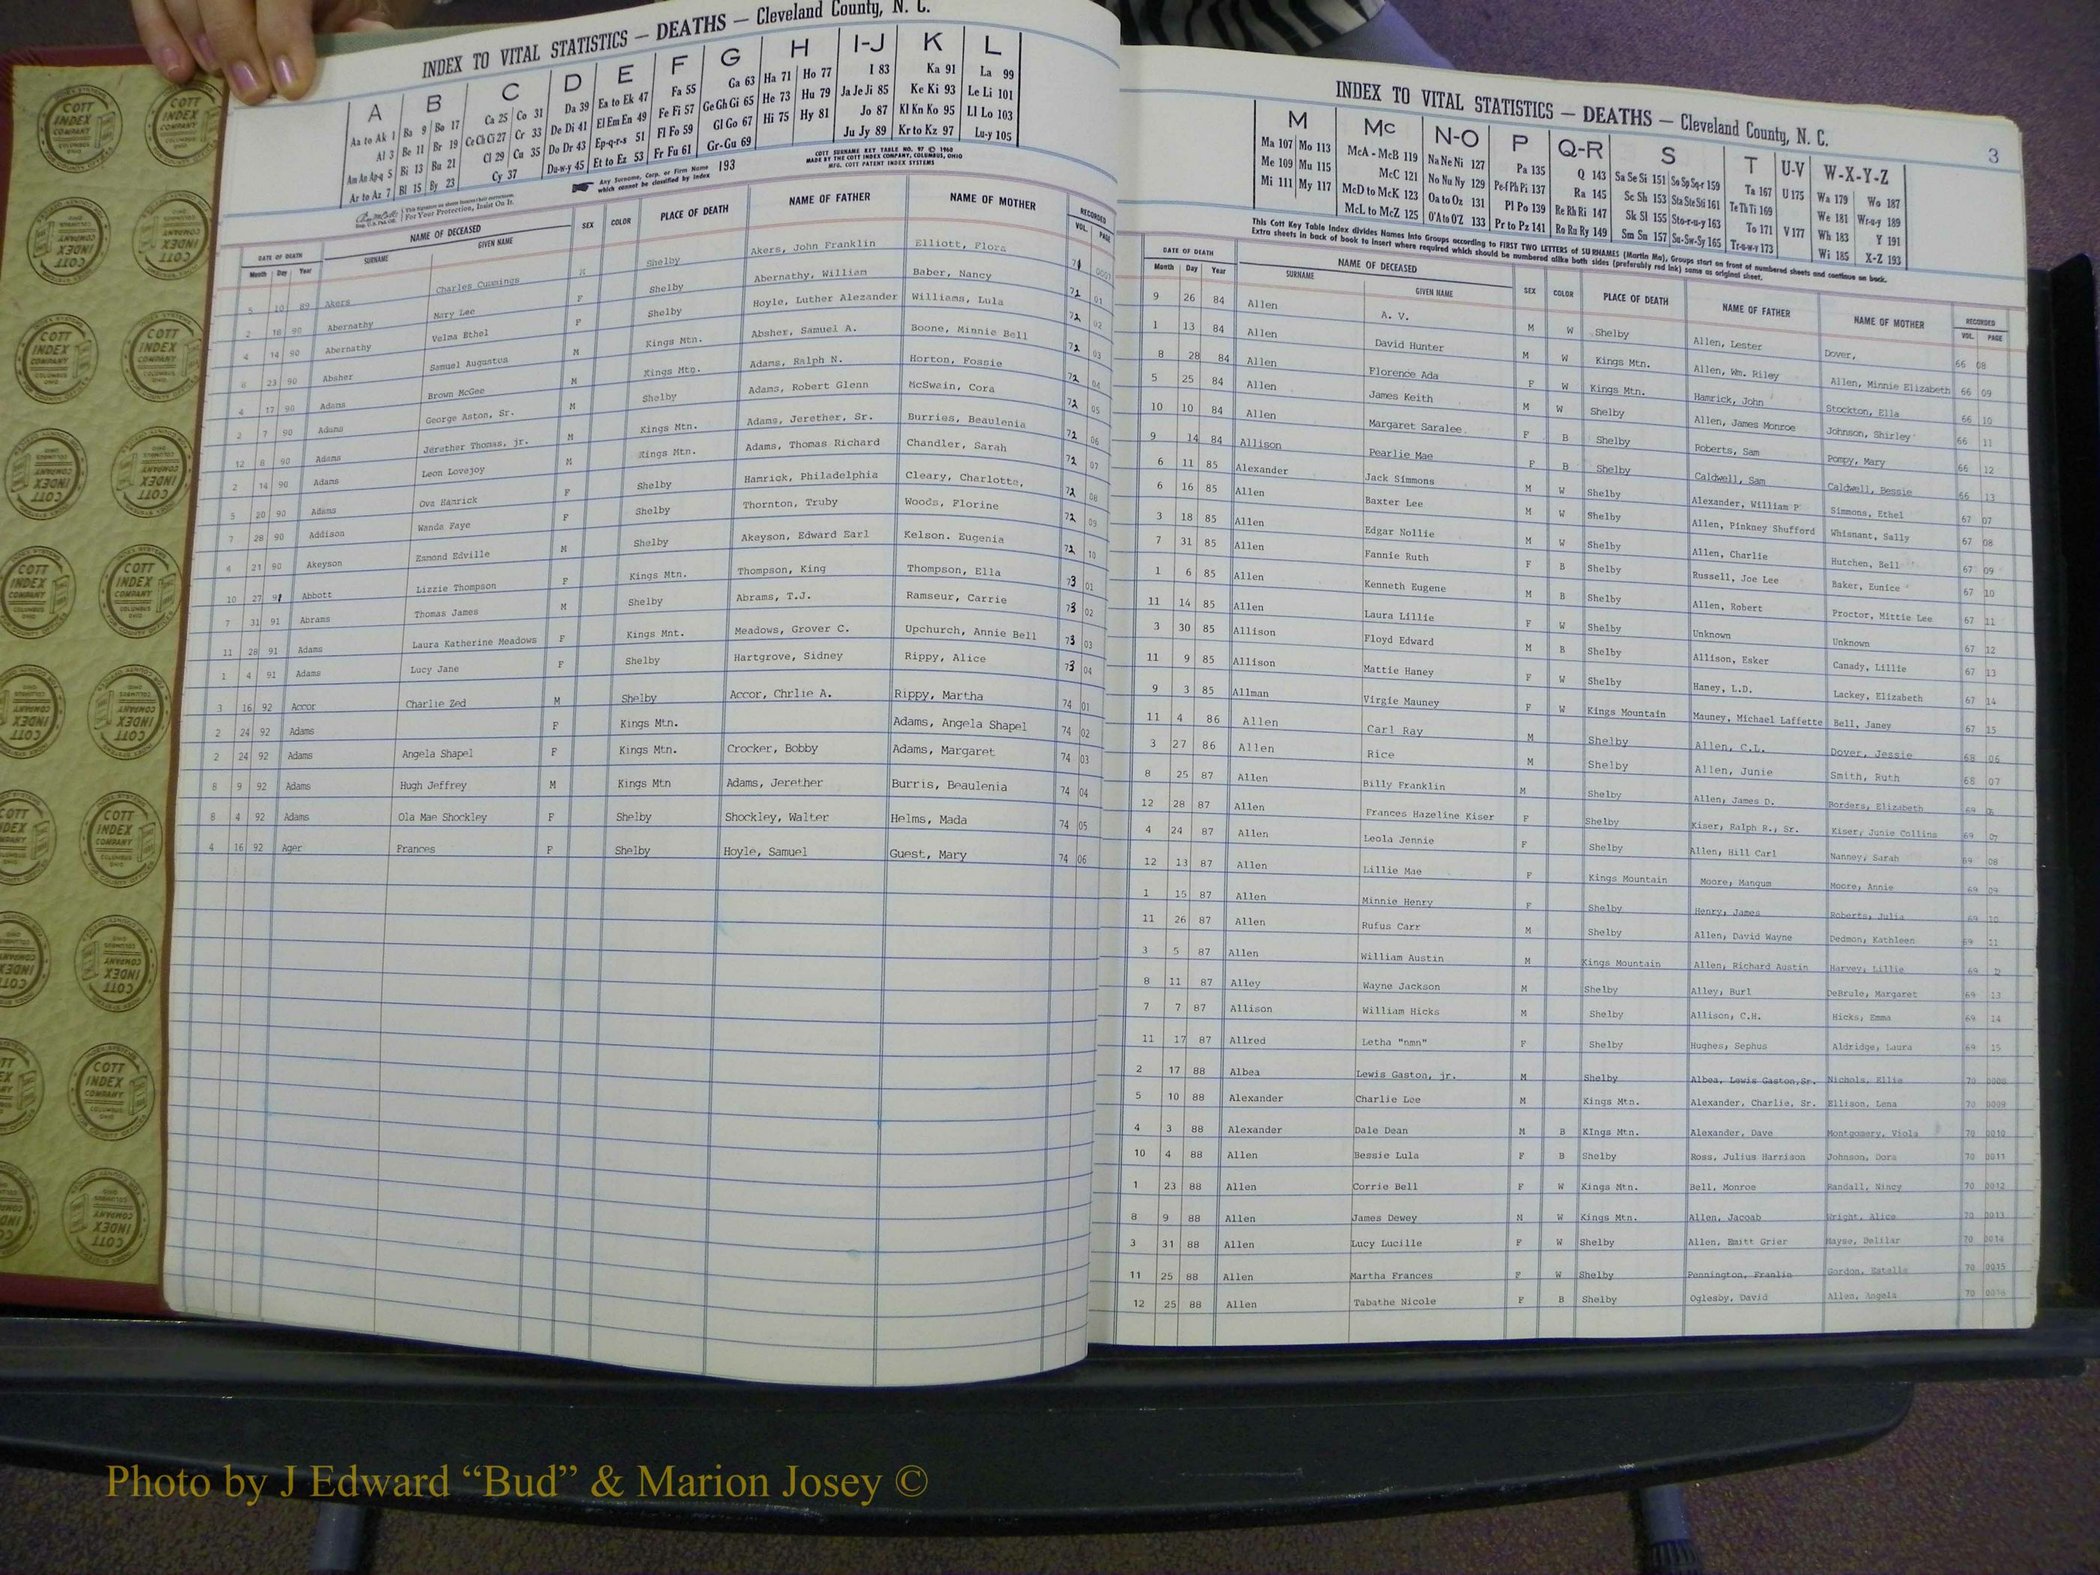 INDEX TO VITAL STATISTICS — DEATHS — Cleveland County, N. C.
A B C D E F G H I-J K L
Aa to Ak 1 Ba 9 Bo 17 Ca 25 Co 31 Da 39 Ea to Ek 47 Fa 55 Ga 63 Ha 71 Ho 77 I 83 Ka 91 La 99
Al 3 Be 11 Br 19 Ce Ch Ci 27 Cr 33 De Di 41 El Em En 49 Fe Fi 57 Ge Gh Gi 65 He 73 Hu 79 Ja Je Ji 85 Ke Ki 93 Le Li 101
Am An Ap-q 5 Bi 13 Bu 21 Cl 29 Cu 35 Do Dr 43 Ep-q-r-s 51 Fl Fo 59 Gl Go 67 Hi 75 Hy 81 Jo 87 Kl Kn Ko 95 Ll Lo 103
Ar to Az 7 Bl 15 By 23 Cy 37 Du-w-y 45 Et to Ez 53 Fr Fu 61 Gr-Gu 69 Ju Jy 89 Kr to Kz 97 Lu-y 105
Any Surname, Corp. or Firm Name which cannot be classified by index 193
COTT SURNAME KEY TABLE NO. 97 © 1960
MADE BY THE COTT INDEX COMPANY, COLUMBUS, OHIO
MFG. COTT PATENT INDEX SYSTEMS
For Your Protection, Insist On It.
DATE OF DEATH NAME OF DECEASED SEX COLOR PLACE OF DEATH NAME OF FATHER NAME OF MOTHER RECORDED
Month Day Year SURNAME GIVEN NAME VOL. PAGE
5 10 89 Akers Charles Cummings M Shelby Akers, John Franklin Elliott, Flora 71 0007
2 18 90 Abernathy Mary Lee F Shelby Abernathy, William Baber, Nancy 72 01
4 14 90 Abernathy Velma Ethel F Shelby Hoyle, Luther Alezander Williams, Lula 72 02
6 23 90 Absher Samuel Augustus M Kings Mtn. Absher, Samuel A. Boone, Minnie Bell 72 03
4 17 90 Adams Brown McGee M Kings Mtn. Adams, Ralph N. Horton, Fossie 72 04
2 7 90 Adams George Aston, Sr. M Shelby Adams, Robert Glenn McSwain, Cora 72 05
12 8 90 Adams Jerether Thomas, jr. M Kings Mtn. Adams, Jerether, Sr. Burries, Beaulenia 72 06
2 14 90 Adams Leon Lovejoy M Kings Mtn. Adams, Thomas Richard Chandler, Sarah 72 07
5 20 90 Adams Ova Hamrick F Shelby Hamrick, Philadelphia Cleary, Charlotte, 72 08
7 28 90 Addison Wanda Faye F Shelby Thornton, Truby Woods, Florine 72 09
4 21 90 Akeyson Esmond Edville M Shelby Akeyson, Edward Earl Kelson. Eugenia 72 10
10 27 91 Abbott Lizzie Thompson F Kings Mtn. Thompson, King Thompson, Ella 73 01
7 31 91 Abrams Thomas James M Shelby Abrams, T.J. Ramseur, Carrie 73 02
11 28 91 Adams Laura Katherine Meadows F Kings Mnt. Meadows, Grover C. Upchurch, Annie Bell 73 03
1 4 91 Adams Lucy Jane F Shelby Hartgrove, Sidney Rippy, Alice 73 04
3 16 92 Accor Charlie Zed M Shelby Accor, Chrlie A. Rippy, Martha 74 01
2 24 92 Adams F Kings Mtn. Adams, Angela Shapel 74 02
2 24 92 Adams Angela Shapel F Kings Mtn. Crocker, Bobby Adams, Margaret 74 03
8 9 92 Adams Hugh Jeffrey M Kings Mtn Adams, Jerether Burris, Beaulenia 74 04
8 4 92 Adams Ola Mae Shockley F Shelby Shockley, Walter Helms, Mada 74 05
4 16 92 Ager Frances F Shelby Hoyle, Samuel Guest, Mary 74 06
INDEX TO VITAL STATISTICS — DEATHS — Cleveland County, N. C.
3
M Mc N-O P Q-R S T U-V W-X-Y-Z
Ma 107 Mo 113 McA - McB 119 Na Ne Ni 127 Pa 135 Q 143 Sa Se Si 151 So Sp Sq-r 159 Ta 167 U 175 Wa 179 Wo 187
Me 109 Mu 115 McC 121 No Nu Ny 129 Pe-f Ph Pi 137 Ra 145 Sc Sh 153 Sta Ste Sti 161 Te Th Ti 169 We 181 Wr-u-y 189
Mi 111 My 117 McD to McK 123 Oa to Oz 131 Pl Po 139 Re Rh Ri 147 Sk Sl 155 Sto-r-u-y 163 To 171 V 177 Wh 183 Y 191
McL to McZ 125 O'A to O'Z 133 Pr to Pz 141 Ro Ru Ry 149 Sm Sn 157 Su-Sw-Sy 165 Tr-u-w-y 173 Wi 185 X-Z 193
This Cott Key Table Index divides Names into Groups according to FIRST TWO LETTERS of SURNAMES (Martin Ma), Groups start on front of numbered sheets and continue on back.
Extra sheets in back of book to insert where required which should be numbered alike both sides (preferably red ink) same as original sheet.
DATE OF DEATH NAME OF DECEASED SEX COLOR PLACE OF DEATH NAME OF FATHER NAME OF MOTHER RECORDED
Month Day Year SURNAME GIVEN NAME VOL. PAGE
9 26 84 Allen A. V. M W Shelby Allen, Lester Dover, 66 08
1 13 84 Allen David Hunter M W Kings Mtn. Allen, Wm. Riley Allen, Minnie Elizabeth 66 09
8 28 84 Allen Florence Ada F W Kings Mtn. Hamrick, John Stockton, Ella 66 10
5 25 84 Allen James Keith M W Shelby Allen, James Monroe Johnson, Shirley 66 11
10 10 84 Allen Margaret Saralee F B Shelby Roberts, Sam Pompy, Mary 66 12
9 14 84 Allison Pearlie Mae F B Shelby Caldwell, Sam Caldwell, Bessie 66 13
6 11 85 Alexander Jack Simmons M W Shelby Alexander, William P Simmons, Ethel 67 07
6 16 85 Allen Baxter Lee M W Shelby Allen, Pinkney Shufford Whisnant, Sally 67 08
3 18 85 Allen Edgar Nollie M W Shelby Allen, Charlie Hutchen, Bell 67 09
7 31 85 Allen Fannie Ruth F B Shelby Russell, Joe Lee Baker, Eunice 67 10
1 6 85 Allen Kenneth Eugene M B Shelby Allen, Robert Proctor, Mittie Lee 67 11
11 14 85 Allen Laura Lillie F W Shelby Unknown Unknown 67 12
3 30 85 Allison Floyd Edward M B Shelby Allison, Esker Canady, Lillie 67 13
11 9 85 Allison Mattie Haney F W Shelby Haney, L.D. Lackey, Elizabeth 67 14
9 3 85 Allman Virgie Mauney F W Kings Mountain Mauney, Michael Laffette Bell, Janey 67 15
11 4 86 Allen Carl Ray M Shelby Allen, C.L. Dover, Jessie 68 06
3 27 86 Allen Rice M Shelby Allen, Junie Smith, Ruth 68 07
8 25 87 Allen Billy Franklin M Shelby Allen, James D. Borders, Elizabeth 69 06
12 28 87 Allen Frances Hazeline Kiser F Shelby Kiser, Ralph R., Sr. Kiser, Junie Collins 69 07
4 24 87 Allen Leola Jennie F Shelby Allen, Hill Carl Nanney, Sarah 69 08
12 13 87 Allen Lillie Mae F Kings Mountain Moore, Mangum Moore, Annie 69 09
1 15 87 Allen Minnie Henry F Shelby Henry, James Roberts, Julia 69 10
11 26 87 Allen Rufus Carr M Shelby Allen, David Wayne Dedmon, Kathleen 69 11
3 5 87 Allen William Austin M Kings Mountain Allen, Richard Austin Harvey, Lillie 69 12
8 11 87 Alley Wayne Jackson M Shelby Alley, Burl DeBrule, Margaret 69 13
7 7 87 Allison William Hicks M Shelby Allison, C.H. Hicks, Emma 69 14
11 17 87 Allred Letha "nmn" F Shelby Hughes, Sephus Aldridge, Laura 69 15
2 17 88 Albea Lewis Gaston, jr. M Shelby Albea, Lewis Gaston, Sr. Nichols, Ellie 70 0008
5 10 88 Alexander Charlie Lee M Kings Mtn. Alexander, Charlie, Sr. Ellison, Lena 70 0009
4 3 88 Alexander Dale Dean M B KIngs Mtn. Alexander, Dave Montgomery, Viola 70 0010
10 4 88 Allen Bessie Lula F B Shelby Ross, Julius Harrison Johnson, Dora 70 0011
1 23 88 Allen Corrie Bell F W Kings Mtn. Bell, Monroe Randall, Nincy 70 0012
8 9 88 Allen James Dewey M W Kings Mtn. Allen, Jacoab Wright, Alice 70 0013
3 31 88 Allen Lucy Lucille F W Shelby Allen, Emitt Grier Mayse, Delilar 70 0014
11 25 88 Allen Martha Frances F W Shelby Pennington, Franlie Gordon, Estelle 70 0015
12 25 88 Allen Tabathe Nicole F B Shelby Oglesby, David Allen, Angela 70 0016
COTT INDEX COMPANY COLUMBUS OHIO
Photo by J Edward “Bud” & Marion Josey ©